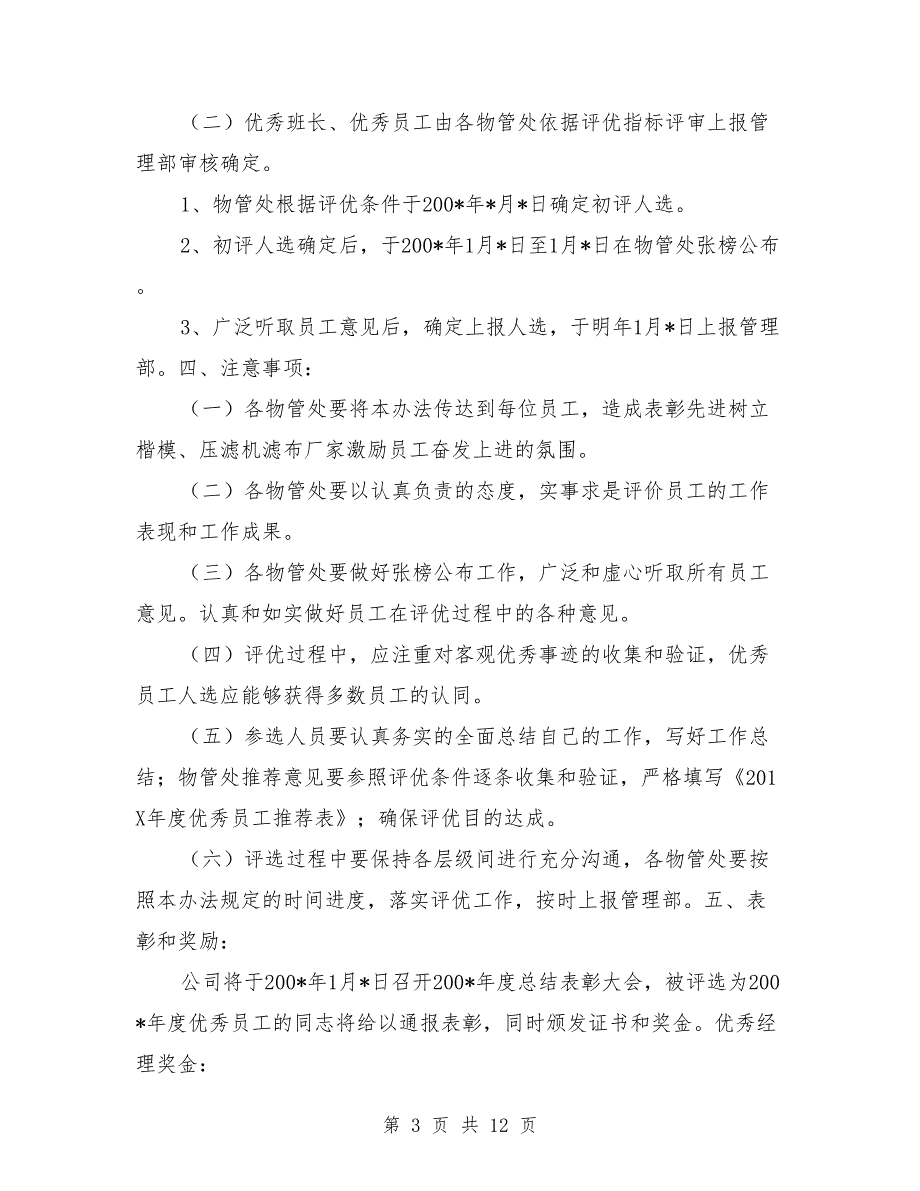 （二）优秀班长、优秀员工由各物管处依据评优指标评审上报管
理部审核确定。
1、物管处根据评优条件于200*年*月*日确定初评人选。
2、初评人选确定后，于200*年1月*日至1月*日在物管处张榜公布
。
3、广泛听取员工意见后，确定上报人选，于明年1月*日上报管理
部。四、注意事项：
（一）各物管处要将本办法传达到每位员工，造成表彰先进树立
楷模、压滤机滤布厂家激励员工奋发上进的氛围。
（二）各物管处要以认真负责的态度，实事求是评价员工的工作
表现和工作成果。
（三）各物管处要做好张榜公布工作，广泛和虚心听取所有员工
意见。认真和如实做好员工在评优过程中的各种意见。
（四）评优过程中，应注重对客观优秀事迹的收集和验证，优秀
员工人选应能够获得多数员工的认同。
（五）参选人员要认真务实的全面总结自己的工作，写好工作总
结；物管处推荐意见要参照评优条件逐条收集和验证，严格填写《201
X年度优秀员工推荐表》；确保评优目的达成。
（六）评选过程中要保持各层级间进行充分沟通，各物管处要按
照本办法规定的时间进度，落实评优工作，按时上报管理部。五、表
彰和奖励：
公司将于200*年1月*日召开200*年度总结表彰大会，被评选为200
*年度优秀员工的同志将给以通报表彰，同时颁发证书和奖金。优秀经
理奖金：
第 3 页 共 12 页